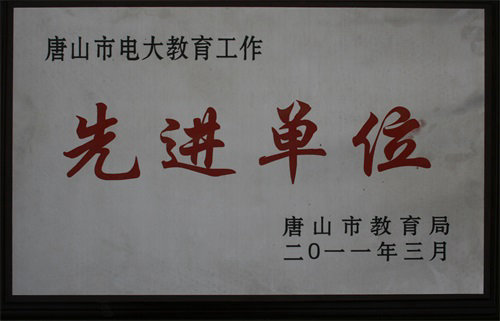 唐山市电大教育工作
先进单位
唐山市教育局
二〇一一年三月